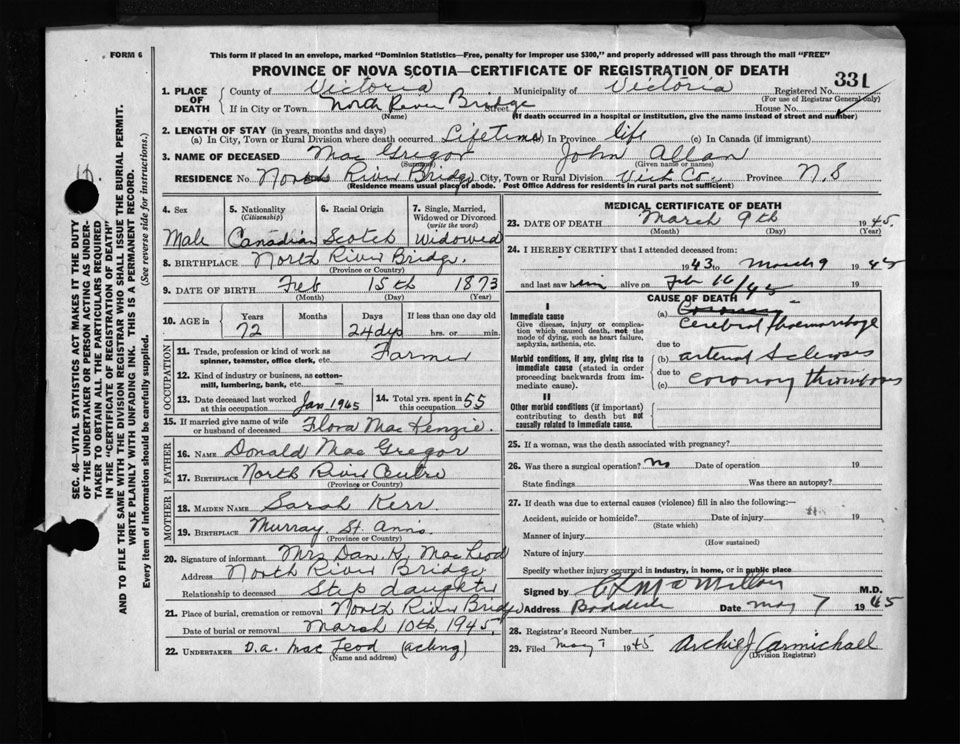 FORM 6
This form if placed in an envelope, marked "Dominion Statistics—Free, penalty for improper use $300," and properly addressed will pass through the mail "FREE"
PROVINCE OF NOVA SCOTIA—CERTIFICATE OF REGISTRATION OF DEATH
331
1. PLACE OF DEATH
County of Victoria Municipality of Victoria Registered No.
(For use of Registrar General only)
If in City or Town North River Bridge Street House No.
(Name) (If death occurred in a hospital or institution, give the name instead of street and number)
2. LENGTH OF STAY (in years, months and days)
(a) In City, Town or Rural Division where death occurred Lifetime (b) In Province life (c) In Canada (if immigrant)
3. NAME OF DECEASED Mac Gregor John Allan
(Surname) (Given name or names)
RESIDENCE No. North River Bridge City, Town or Rural Division Vict Co. Province N.S
(Residence means usual place of abode. Post Office Address for residents in rural parts not sufficient)
4. Sex
Male
5. Nationality
(Citizenship)
Canadian
6. Racial Origin
Scotch
7. Single, Married, Widowed or Divorced
(write the word)
Widowed
8. BIRTHPLACE North River Bridge.
(Province or Country)
9. DATE OF BIRTH Feb 15th 1873
(Month) (Day) (Year)
10. AGE in
Years Months Days If less than one day old
72 24 dys hrs. or min.
OCCUPATION
11. Trade, profession or kind of work as Farmer
spinner, teamster, office clerk, etc.
12. Kind of industry or business, as cotton-
mill, lumbering, bank, etc. —
13. Date deceased last worked at this occupation Jan 1945
14. Total yrs. spent in this occupation 55
15. If married give name of wife or husband of deceased Flora Mac Kenzie.
FATHER
16. NAME Donald Mac Gregor
17. BIRTHPLACE North River Centre
(Province or Country)
MOTHER
18. MAIDEN NAME Sarah Kerr
19. BIRTHPLACE Murray, St. Anns.
(Province or Country)
20. Signature of informant Mrs Dan. K. Mac Leod
Address North River Bridge
Relationship to deceased Step daughter
21. Place of burial, cremation or removal North River Bridge
Date of burial or removal March 10th 1945.
22. UNDERTAKER D. A. Mac Leod (acting)
(Name and address)
MEDICAL CERTIFICATE OF DEATH
23. DATE OF DEATH March 9th 1945.
(Month) (Day) (Year)
24. I HEREBY CERTIFY that I attended deceased from:
1943 to March 9 1945
and last saw him alive on Feb 16/45 19
CAUSE OF DEATH
I
Immediate cause
Give disease, injury or complication which caused death, not the mode of dying, such as heart failure, asphyxia, asthenia, etc.
(a) Coronary
Cerebral Haemorrhage
due to
Morbid conditions, if any, giving rise to immediate cause (stated in order proceeding backwards from immediate cause).
(b) arterial Sclerosis
due to
(c) coronary thrombosis
II
Other morbid conditions (if important) contributing to death but not causally related to immediate cause.
25. If a woman, was the death associated with pregnancy?
26. Was there a surgical operation? No Date of operation 19
State findings Was there an autopsy?
27. If death was due to external causes (violence) fill in also the following:—
Accident, suicide or homicide? Date of injury 19
(State which)
Manner of injury
(How sustained)
Nature of injury
Specify whether injury occurred in industry, in home, or in public place
Signed by M.D.
Address Baddeck Date May 7 1945
28. Registrar's Record Number
29. Filed May 7 1945 Archie J Carmichael
(Division Registrar)
SEC. 46—VITAL STATISTICS ACT MAKES IT THE DUTY
OF THE UNDERTAKER OR PERSON ACTING AS UNDER-
TAKER TO OBTAIN ALL THE PARTICULARS REQUIRED
IN THE "CERTIFICATE OF REGISTRATION OF DEATH"
AND TO FILE THE SAME WITH THE DIVISION REGISTRAR WHO SHALL ISSUE THE BURIAL PERMIT.
WRITE PLAINLY WITH UNFADING INK. THIS IS A PERMANENT RECORD.
Every item of information should be carefully supplied. (See reverse side for instructions.)